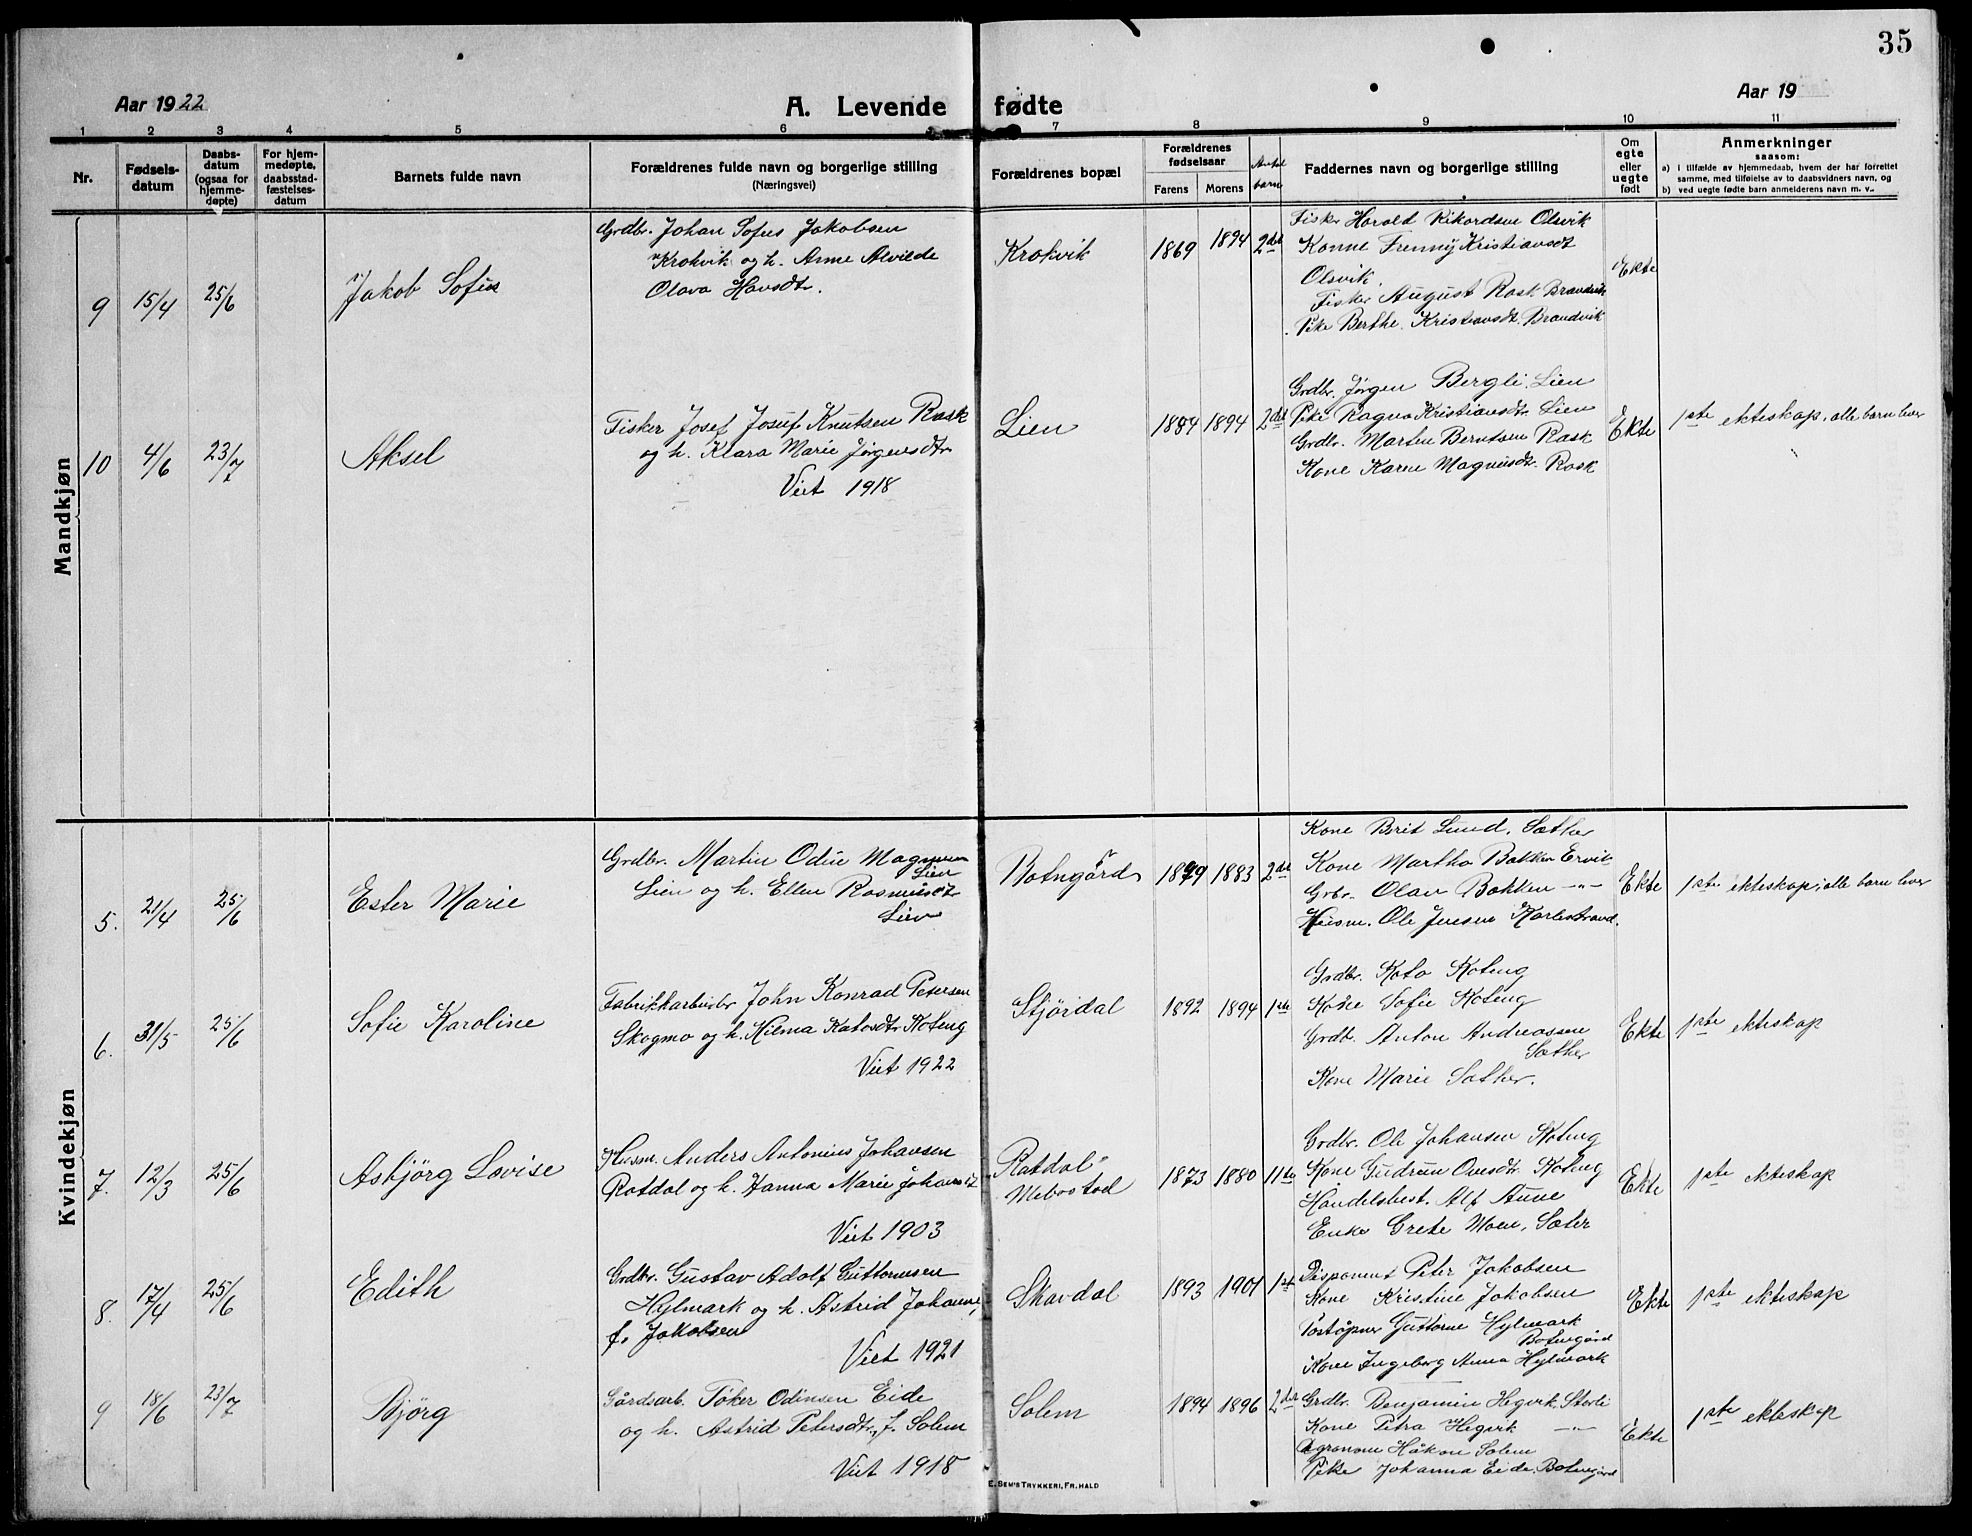 35
Aar 1922
A. Levende fødte
Aar 19
1 2 3 4 5 6 7 8 9 10 11
Nr.
Fødsels-
datum
Daabs-
datum
(ogsaa for
hjemme-
døpte)
For hjem-
medøpte,
daabsstad-
fæstelses-
datum
Barnets fulde navn
Forældrenes fulde navn og borgerlige stilling
(Næringsvei)
Forældrenes bopæl
Forældrenes
fødselsaar
Farens Morens
Antal
barn
Faddernes navn og borgerlige stilling
Om
egte
eller
uegte
født
Anmerkninger
saasom:
a) i tilfælde av hjemmedaab, hvem der har forrettet
samme, med tilføielse av to daabsvidners navn, og
b) ved uegte fødte barn anmelderens navn m. v..
Mandkjøn
9 15/4 25/6
Jakob Sofus
Grdbr. Johan Sofus Jakobsen
Krokvik og h. Anne Alvilde
Olava Hansdtr.
Krokvik
1869 1894 2det
Fisker Harald Rikardsen Olsvik
Konne Frenny Kristiansdt
Olsvik.
Fisker August Rask Brandvik
Pike Berthe Kristiansdt. Brandvik
Ekte
10 4/6 23/7
Aksel
Fisker Josef Josuf Knutsen Rask
og h. Klara Marie Jørgensdtr
Viet 1918
Lien
1884 1894 2det
Grdbr. Jørgen Bergli. Lien
Pike Ragna Kristiansdtr. Lien
Grdbr. Marten Berntsen Rask
Kone Karen Magnusdt. Rask
Ekte
1ste ekteskap, alle barn lever
Kvindekjøn
5. 21/4 25/6
Ester Marie
Grdbr. Martin Odin Magnusen
Lien
Lien og h. Ellen Rasmusdt
Lien
Botngård
1879 1883 2det
Kone Berit Lund, Sæther
Kone Martha Bakken Ervik
Grbr. Olav Bakken -"-
Husm. Ole Jensen Karlestrand.
Ekte
1ste ekteskap; alle barn lever
6. 31/5 25/6
Sofie Karoline
Fabrikkarbeider John Konrad Petersen
Skogmo og h. Hilma Katosdtr Koteng
Viet 1922
Stjørdal
1892 1894 1ste
Grdbr. Kato Koteng
Kone Sofie Koteng
Grdb. Anton Andreassen
Sæther
Kone Marie Sæther.
Ekte
1ste ekteskap
7. 12/3 25/6
Asbjörg Lovise
Husm. Anders Antonius Johansen
Rotdal og h. Hanna Marie Johansdt
Viet 1903
Rotdal
Mebostad
1873 1880 11te
Grdbr. Ole Johansen Koteng
Kone Gudrun Ovesdtr. Koteng
Handelsbest. Alf Aune
Enke Grete Moen, Sæter
Ekte
1ste ekteskap
8. 17/4 25/6
Edith
Grdbr. Gustav Adolf Guttormsen
Hylmark og h. Astrid Johanne,
f. Jakobsen
Viet 1921
Skavdal
1893 1901 1ste
Disponent Peter Jakobsen
Kone Kristine Jakobsen
Postöpner Guttorm Hylmark
Botngård
Kone Ingeborg Anna Hylmark
Ekte
1ste ekteskap
9 18/6 23/7
Björg
Gårdsarb. Töker Odinsen Eide
og h. Astrid Petersdtr., f. Solem
Viet 1918
Solem
1894 1896 2det
Grdbr. Benjamin Hegvik, Sterli
Kone Petra Hegvik -"-
Agronom Håkon Solem
Pike Johanna Eide, Botngård
Ekte
1ste ekteskap
E. Sem's Trykkeri, Fr.hald